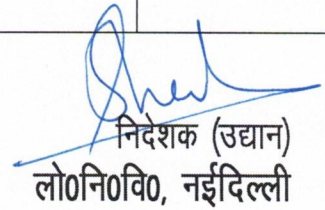 निदेशक (उद्यान)
लो0नि0वि0, नईदिल्ली